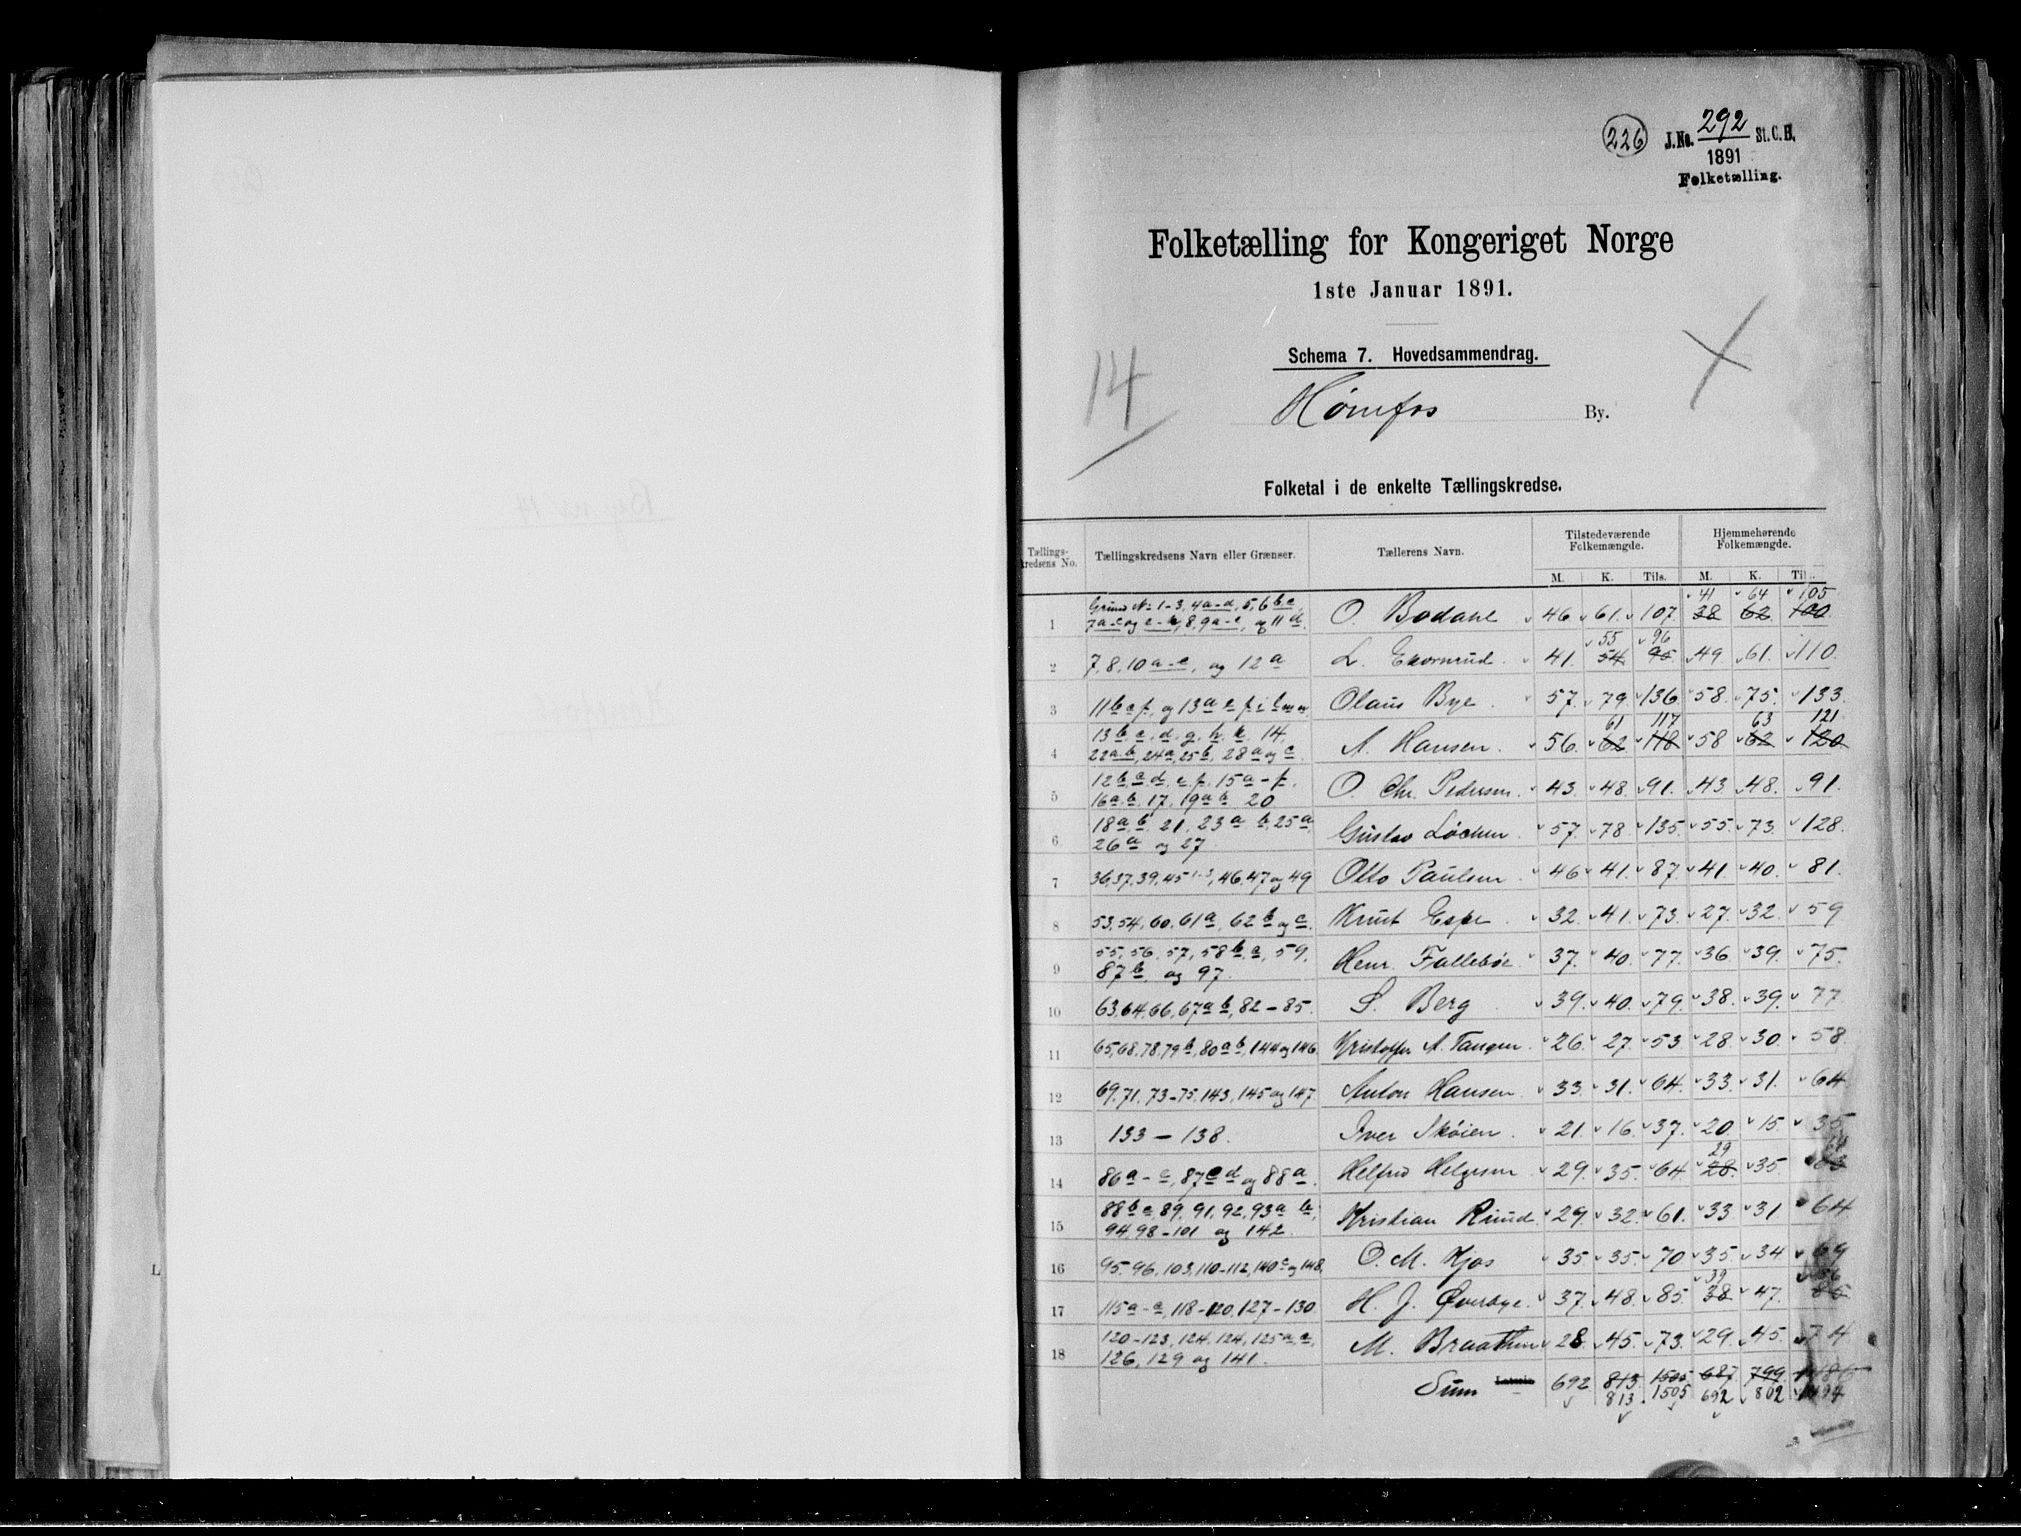 226 J.No. 292 St.C.B.
1891
Folketælling.
Folketælling for Kongeriget Norge
1ste Januar 1891.
14
Schema 7. Hovedsammendrag.
Hønefos By.
Folketal i de enkelte Tællingskredse.
Tællings-kredsens No. Tællingskredsens Navn eller Grænser. Tællerens Navn. Tilstedeværende Folkemængde. Hjemmehørende Folkemængde.
M. K. Tils. M. K. Tils.
41 64 105
1 Grund No 1-3, 4a-d, 5, 6b c, 7a-c og e-k, 8, 9a-e, og 11d. O. Bodahl 46 61 107 38 62 100
55 96
2 7, 8, 10a-e, og 12a L. Ekornrud 41 54 95 49 61 110
3 11b e f, og 13a e f i l m n Olaus Bye 57 79 136 58 75 133
61 117 63 121
4 13b. c. d. g. h. k. 14, 22a b, 24a, 25b, 28a og c A. Hansen 56 62 118 58 62 120
5 12b. c. d. e. f. 15a-f. 16a. b. 17, 19a b 20 O. Chr. Pedersen 43 48 91 43 48 91
6 18a. b. 21, 23a b, 25a 26a og 27 Gustav Løchen 57 78 135 55 73 128
7 36, 37, 39, 45 1-3, 46, 47 og 49 Otto Paulsen 46 41 87 41 40 81
8 53, 54, 60, 61a, 62b og c. Knut Espe 32 41 73 27 32 59
9 55, 56, 57, 58b. c, 59, 87b, og 97. Henr. Follebøe 37 40 77 36 39 75
10 63, 64, 66, 67a b, 82-85. S. Berg 39 40 79 38 39 77
11 65, 68, 78, 79b, 80a b, 144 og 146 Kristoffer A. Tangen 26 27 53 28 30 58
12 69, 71, 73-75, 143, 145 og 147 Anton Hansen 33 31 64 33 31 64
13 133-138. Iver Skøien 21 16 37 20 15 35
29 64
14 86a-c, 87c d og 88a. Helfred Helgesen 29 35 64 28 35 63
15 88b c, 89, 91, 92, 93a b, 94, 98-101 og 142. Kristian Ruud 29 32 61 33 31 64
16 95, 96, 103, 110-112, 140c og 148. O. M. Kjos 35 35 70 35 34 69
39 86
17 115a-c, 118-120, 127-130 H. J. Øverbye 37 48 85 38 47 85
18 120-123, 124, 124, 125a. c, 126, 129 og 141. M. Braathen 28 45 73 29 45 74
Sum Lateris 692 813 1505 687 799 1486
813 1505 692 802 1494